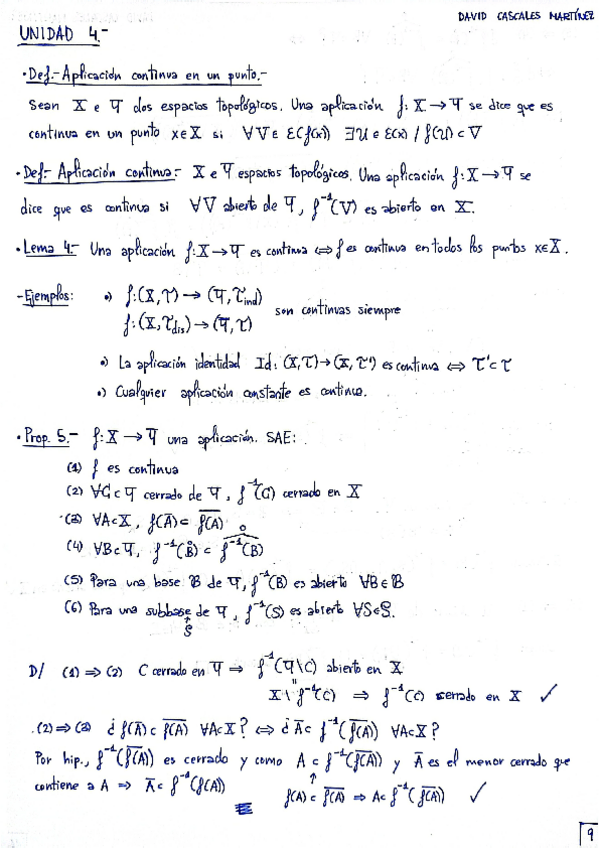 DAVID CASCALES MARTÍNEZ
UNIDAD 4.-
· Def.- Aplicación continua en un punto.-
Sean X e Y dos espacios topológicos. Una aplicación f: X → Y se dice que es
continua en un punto x∈X si ∀V∈ Ɛ(f(x)) ∃U∈ Ɛ(x) / f(U) ⊂ V
· Def.- Aplicación continua.- X e Y espacios topológicos. Una aplicación f: X → Y se
dice que es continua si ∀V abierto de Y, f⁻¹(V) es abierto en X.
· Lema 4.- Una aplicación f: X → Y es continua ⇔ f es continua en todos los puntos x∈X.
- Ejemplos: •) f: (X, τ) → (Y, τind)
f: (X, τdis) → (Y, τ) son continuas siempre
•) La aplicación identidad Id: (X, τ) → (X, τ') es continua ⇔ τ' ⊂ τ
•) Cualquier aplicación constante es continua.
· Prop. 5.- f: X → Y una aplicación. SAE:
(1) f es continua
(2) ∀C ⊂ Y cerrado de Y, f⁻¹(C) cerrado en X
(3) ∀A⊂X, f(A̅) ⊂ f(A)̅
(4) ∀B⊂Y, f⁻¹(B̊) ⊂ f⁻¹(B)̊
(5) Para una base 𝓑 de Y, f⁻¹(B) es abierto ∀B∈𝓑
(6) Para una subbase de Y, f⁻¹(S) es abierto ∀S∈𝒮.
𝒮
D/ (1) ⇒ (2) C cerrado en Y ⇒ f⁻¹(Y\C) abierto en X
X \ f⁻¹(C) ⇒ f⁻¹(C) cerrado en X ✓
(2) ⇒ (3) ¿ f(A̅) ⊂ f(A)̅ ∀A⊂X? ⇔ ¿ A̅ ⊂ f⁻¹(f(A)̅) ∀A⊂X?
Por hip., f⁻¹(f(A)̅) es cerrado y como A ⊂ f⁻¹(f(A)̅) y A̅ es el menor cerrado que
contiene a A ⇒ A̅ ⊂ f⁻¹(f(A)̅) f(A) ⊂ f(A)̅ ⇒ A ⊂ f⁻¹(f(A)̅) ✓
9